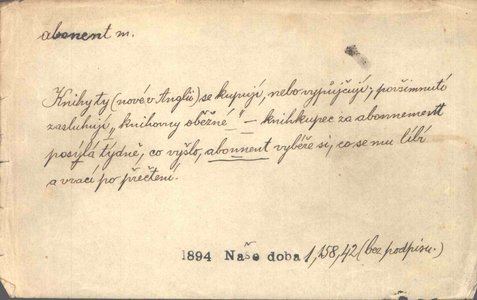 abonent m.
Knihy ty (nové v Anglii) se kupují, nebo vypůjčují; povšimnutí
zasluhují „knihovny oběžné" – knihkupec za abonnement
posýlá týdně, co vyšlo, abonnent vybéře si, co se mu líbí
a vrací po přečtení.
1894 Naše doba 1,158,42 (bez podpisu.)